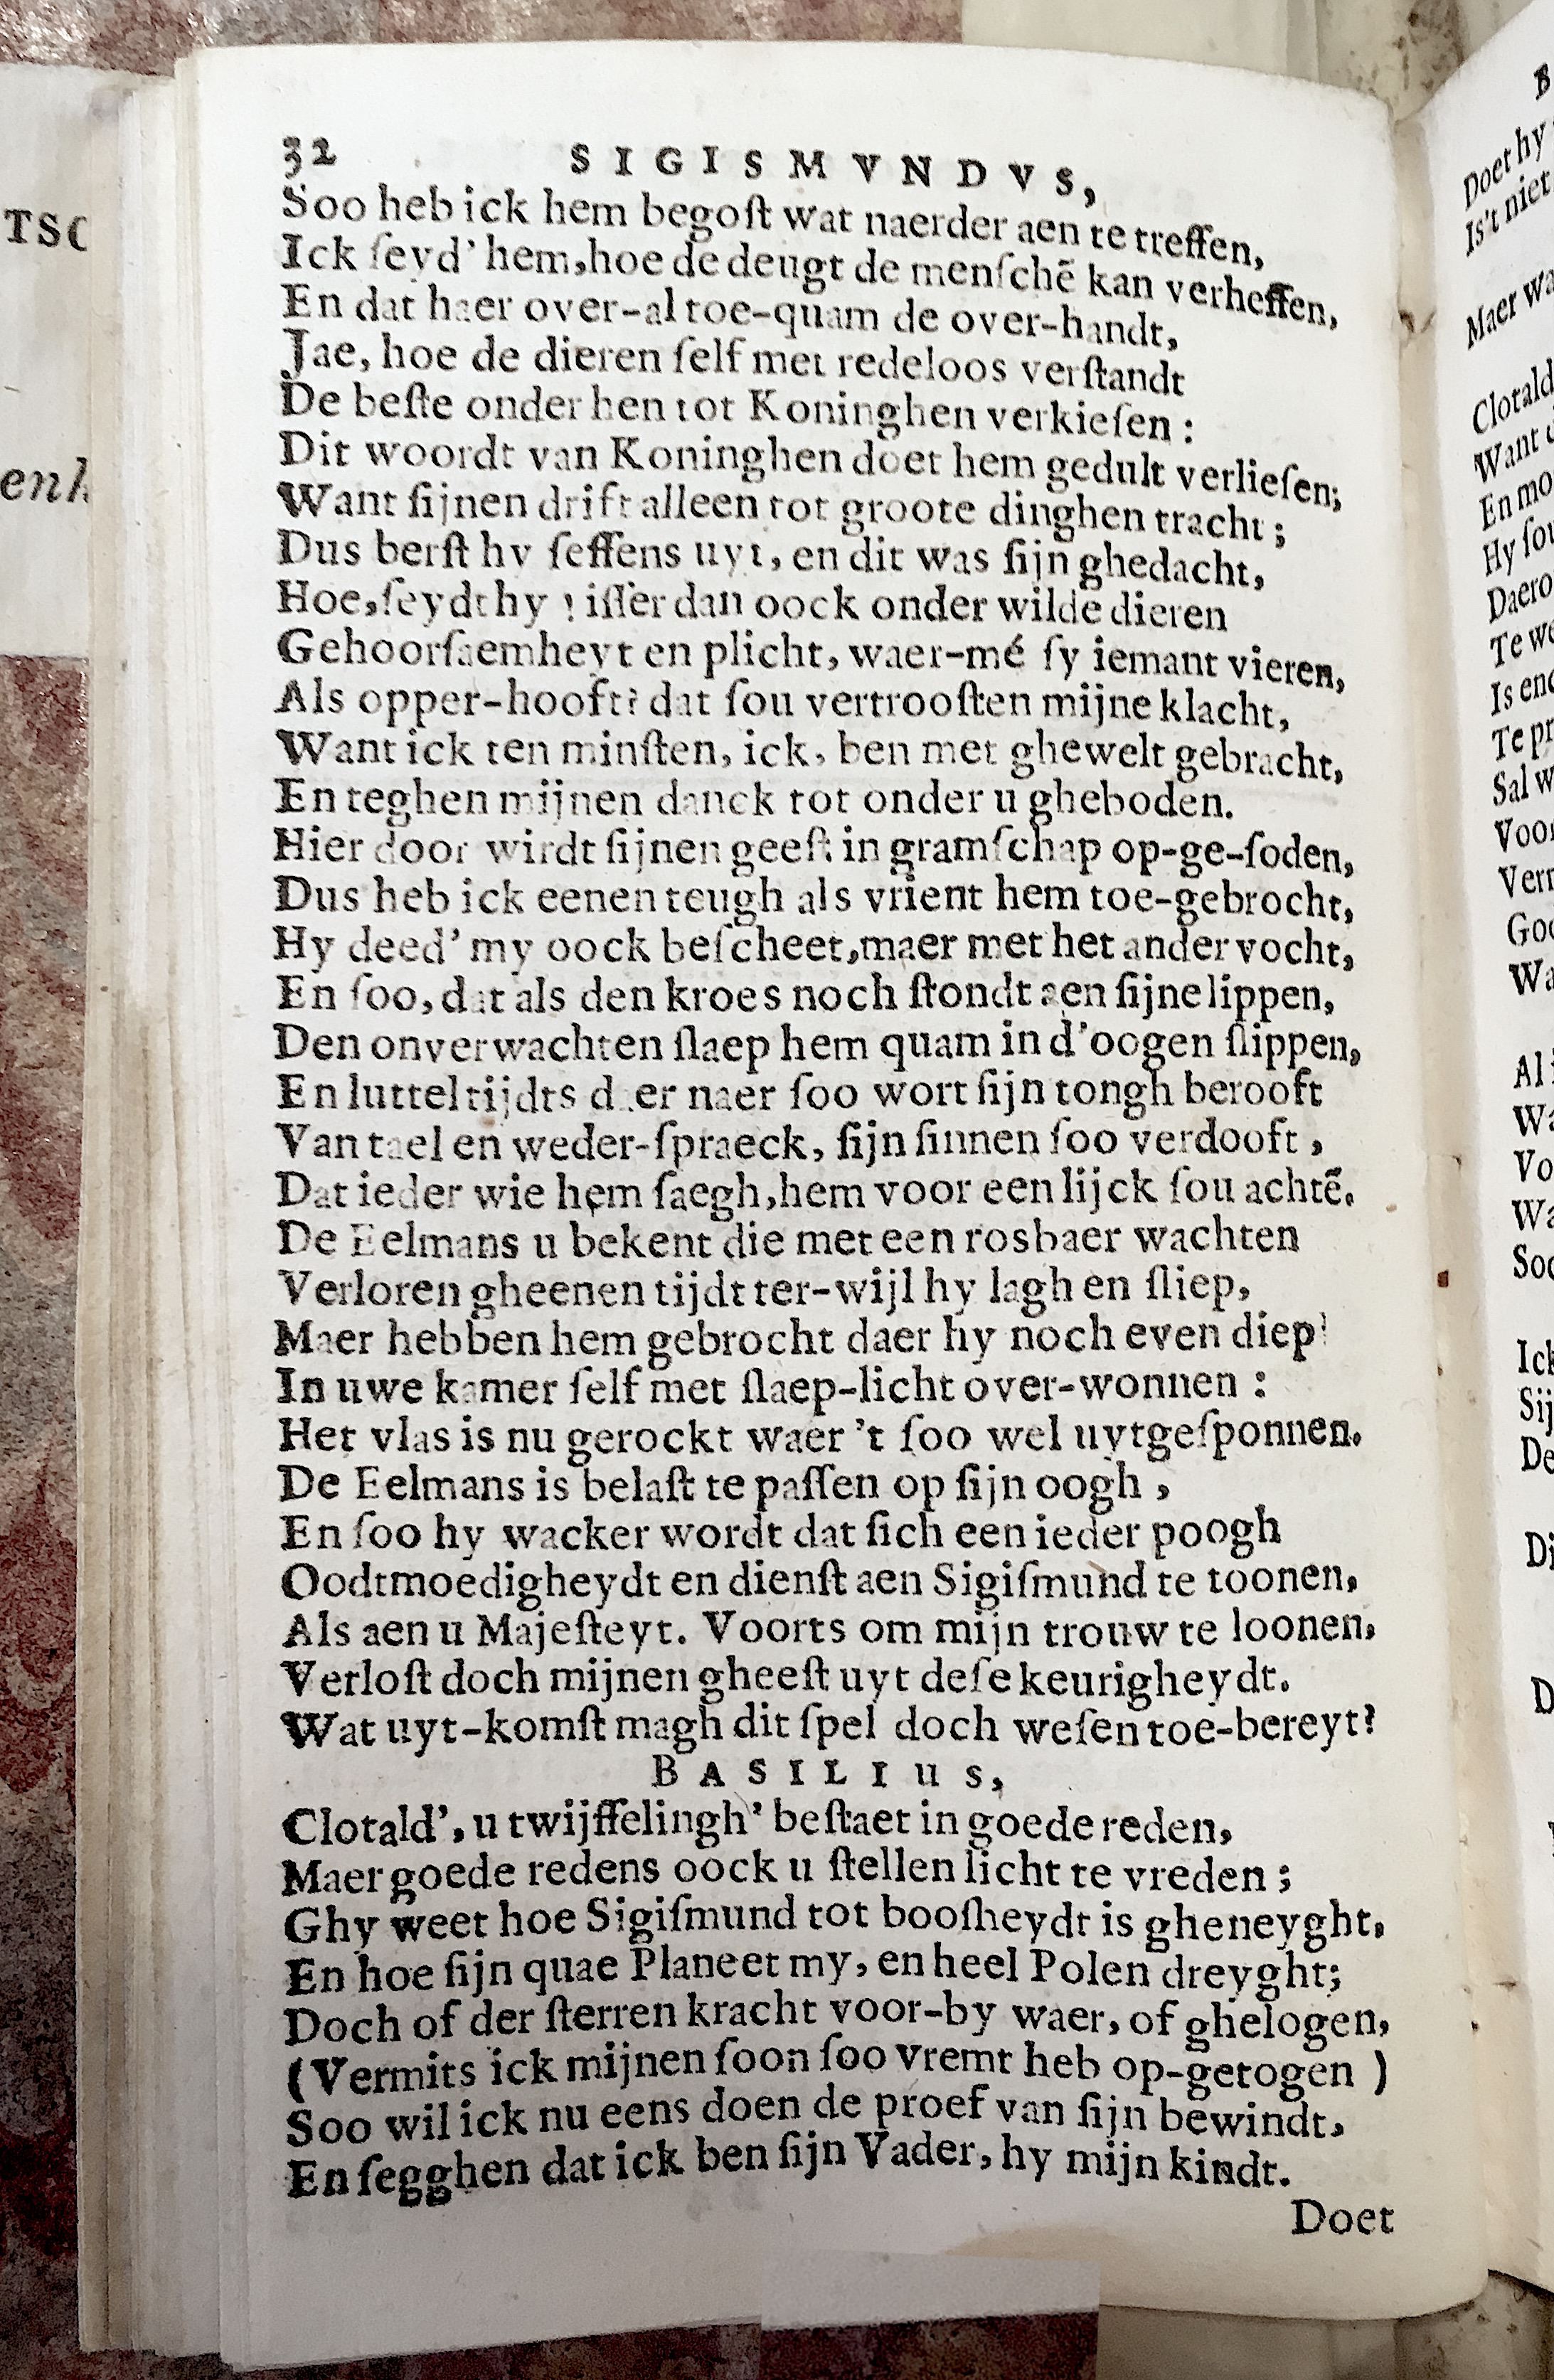 32 SIGISMVNDVS,
Soo heb ick hem begoſt wat naerder aen te treffen,
Ick ſeyd' hem, hoe de deugt de menſchē kan verheffen,
En dat haer over-al toe-quam de over-handt,
Jae, hoe de dieren ſelf met redeloos verſtandt
De beſte onder hen tot Koninghen verkieſen:
Dit woordt van Koninghen doet hem gedult verlieſen;
Want ſijnen drift alleen tot groote dinghen tracht;
Dus berſt hy ſeffens uyt, en dit was ſijn ghedacht,
Hoe, ſeydt hy! iſſer dan oock onder wilde dieren
Gehoorſaemheyt en plicht, waer-mé ſy iemant vieren,
Als opper-hooft? dat ſou vertrooſten mijne klacht,
Want ick ten minſten, ick, ben met ghewelt gebracht,
En teghen mijnen danck tot onder u gheboden.
Hier door wirdt ſijnen geeſt in gramſchap op-ge-ſoden,
Dus heb ick eenen teugh als vrient hem toe-gebrocht,
Hy deed' my oock beſcheet, maer met het ander vocht,
En ſoo, dat als den kroes noch ſtondt aen ſijne lippen,
Den onverwachten ſlaep hem quam in d'oogen ſlippen,
En luttel tijdts daer naer ſoo wort ſijn tongh berooft
Van tael en weder-ſpraeck, ſijn ſinnen ſoo verdooft,
Dat ieder wie hem ſaegh, hem voor een lijck ſou achtē.
De Eelmans u bekent die met een rosbaer wachten
Verloren gheenen tijdt ter-wijl hy lagh en ſliep,
Maer hebben hem gebrocht daer hy noch even diep
In uwe kamer ſelf met ſlaep-licht over-wonnen:
Het vlas is nu gerockt waer 't ſoo wel uytgeſponnen.
De Eelmans is belaſt te paſſen op ſijn oogh,
En ſoo hy wacker wordt dat ſich een ieder poogh
Oodtmoedigheydt en dienſt aen Sigiſmund te toonen,
Als aen u Majeſteyt. Voorts om mijn trouw te loonen,
Verloſt doch mijnen gheeſt uyt deſe keurigheydt.
Wat uyt-komſt magh dit ſpel doch weſen toe-bereyt?
BASILIus,
Clotald', u twijffelingh' beſtaet in goede reden,
Maer goede redens oock u ſtellen licht te vreden;
Ghy weet hoe Sigiſmund tot booſheydt is gheneyght,
En hoe ſijn quae Planeet my, en heel Polen dreyght;
Doch of der ſterren kracht voor-by waer, of ghelogen,
(Vermits ick mijnen ſoon ſoo vremt heb op-getogen)
Soo wil ick nu eens doen de proef van ſijn bewindt,
En ſegghen dat ick ben ſijn Vader, hy mijn kindt.
Doet
TSC
enk
B
Doet hy
Is't niet
Maer wa
Clotald
Want
En mo
Hy ſou
Daero
Te we
Is en
Te pr
Sal w
Voor
Goo
Wa
Al
Wa
Vo
Wa
Soo
Ick
Sij
De
Di
D